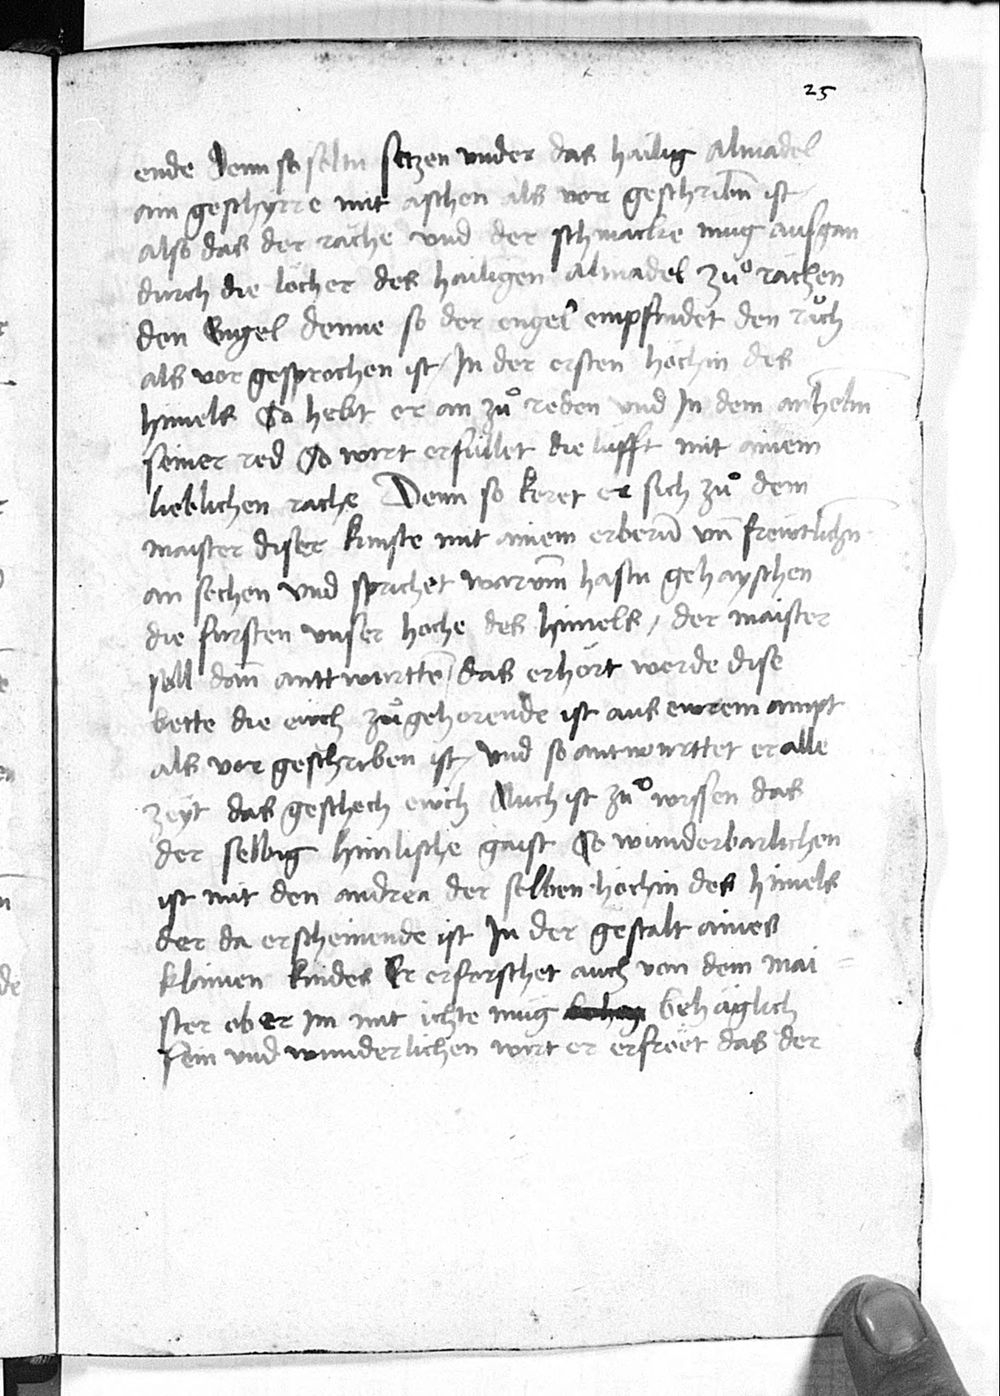 25
ende denn so soltu setzen vnder das hailig Almadel
ain geschyrre mit aschen als vor geschribn̄ ist
also das der räche vnd der schmacke mug ausgan
durch die löcher des hailigen Almadel zů rächen
den Engel denne so der engel empfindet den růch
als vor gesprochen ist / In der ersten höchin des
himels So hebt er an zů reden vnd In dem anhebn̄
seiner red So wirt erfüllet die lüfft mit ainem
lieblichen rache Denn so keret er sich zů dem
maister diser kunste mit ainem erbern̄ vn̄ freuntlichn̄
an sechen vnd sprichet warum̄ hastu gehayschen
die fursten vnser hoche des himels / der maister
soll dan̄ anttwurttē / das erhört werde dise
bette die euch zůgehorende ist aus ewrem ampt
als vor geschriben ist / vnd so antwurttet er alle
zeyt das geschech ewch Auch ist zů wissen das
der selbig himlische gaist So wunderbarlichen
ist mit den andren der selben höchin des himels
der da erscheinende ist In der gestalt aines
klainen kindes Er erforschet auch von dem mai=
ster ob er Im mit ichte mug behäglich
sein vnd wunderlichen wirt er erfröet das der